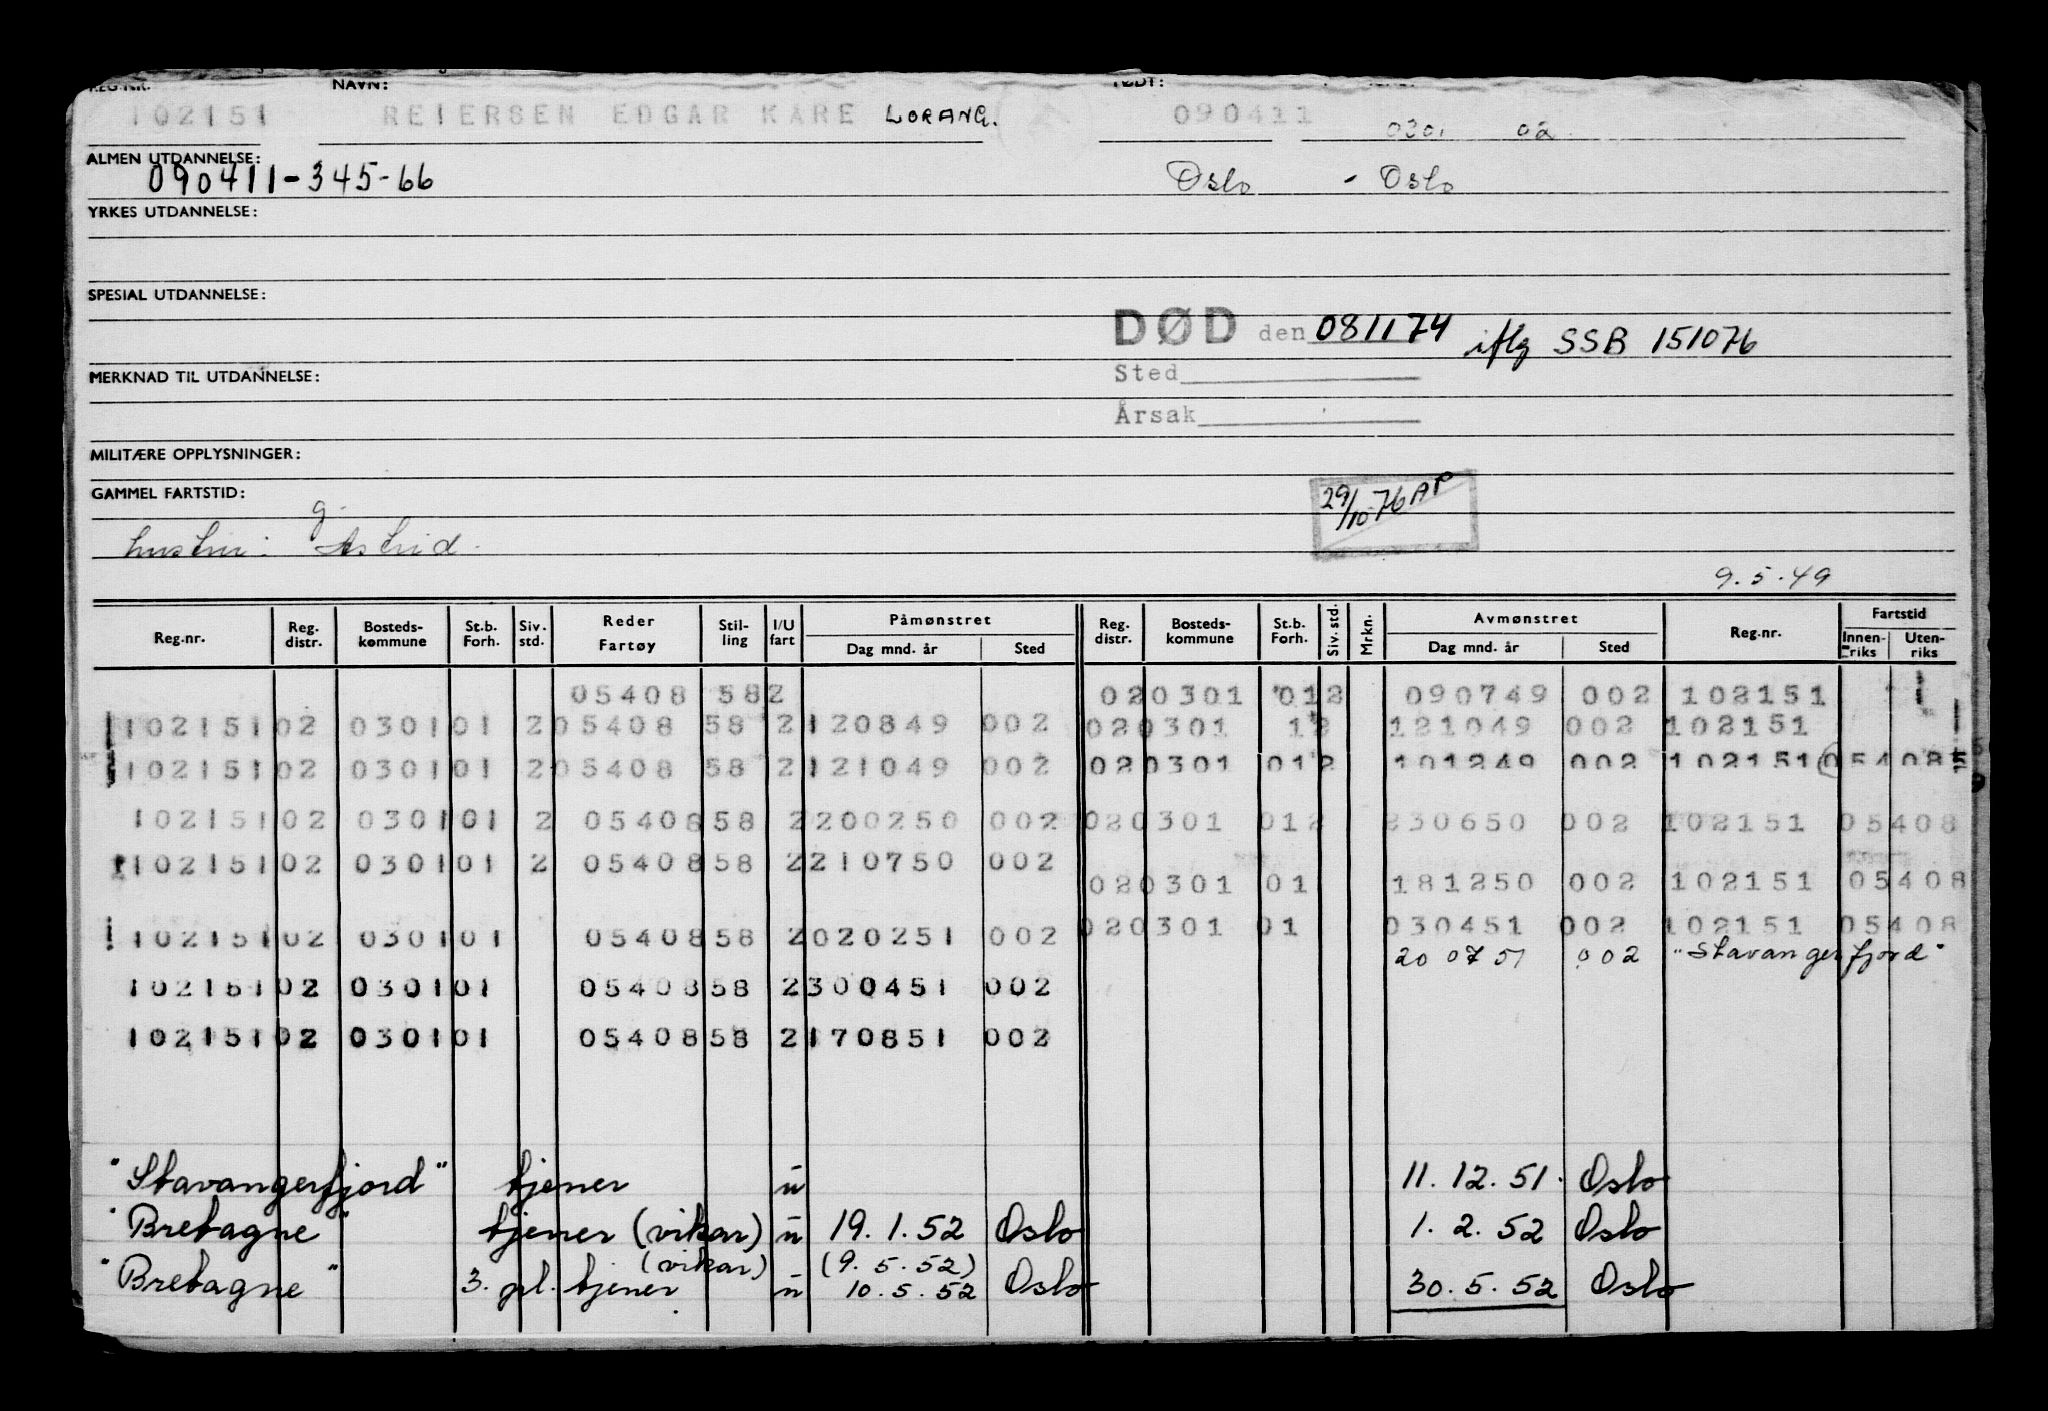 REG.NR. NAVN: FØDT:
102151 REIERSEN EDGAR KARE LORANG. 090411 0301 02
ALMEN UTDANNELSE:
090411-345-66 Oslo - Oslo
YRKES UTDANNELSE:
SPESIAL UTDANNELSE:
DØD den 081174 iflg SSB 151076
MERKNAD TIL UTDANNELSE: Sted
Årsak
MILITÆRE OPPLYSNINGER:
GAMMEL FARTSTID: 29/10-76 AP
g.
hustru: Astrid.
9.5.49
Reg.nr. Reg. distr. Bosteds-kommune St.b. Forh. Siv. std. Reder Fartøy Stil-ling I/U fart Påmønstret Dag mnd. år Sted Reg. distr. Bosteds-kommune St.b. Forh. Siv. std. Mrkn. Avmønstret Dag mnd. år Sted Reg.nr. Fartstid Innen-riks Uten-riks
05408 58 2 02 0301 01 2 090749 002 102151
102151 02 0301 01 2 05408 58 2 120849 002 02 0301 1 2 121049 002 102151
102151 02 0301 01 2 05408 58 2 121049 002 02 0301 01 2 101249 002 102151 05408
102151 02 0301 01 2 05408 58 2 200250 002 02 0301 01 2 230650 002 102151 05408
102151 02 0301 01 2 05408 58 2 210750 002
02 0301 01 181250 002 102151 05408
02 0301 01 030451 002 102151 05408
102151 02 0301 01 05408 58 2 020251 002
20 07 51 002 "Stavangerfjord"
102151 02 0301 01 05408 58 2 300451 002
102151 02 0301 01 05408 58 2 170851 002
"Stavangerfjord" tjener u 11.12.51. Oslo
"Bretagne" tjener (vikar) u 19.1.52 Oslo 1.2.52 Oslo
(vikar) (9.5.52)
"Bretagne" 3. gl. tjener u 10.5.52 Oslo 30.5.52 Oslo